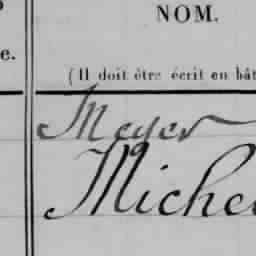 NOM.
e.
(Il doit être écrit en bât
Meyer
Michel